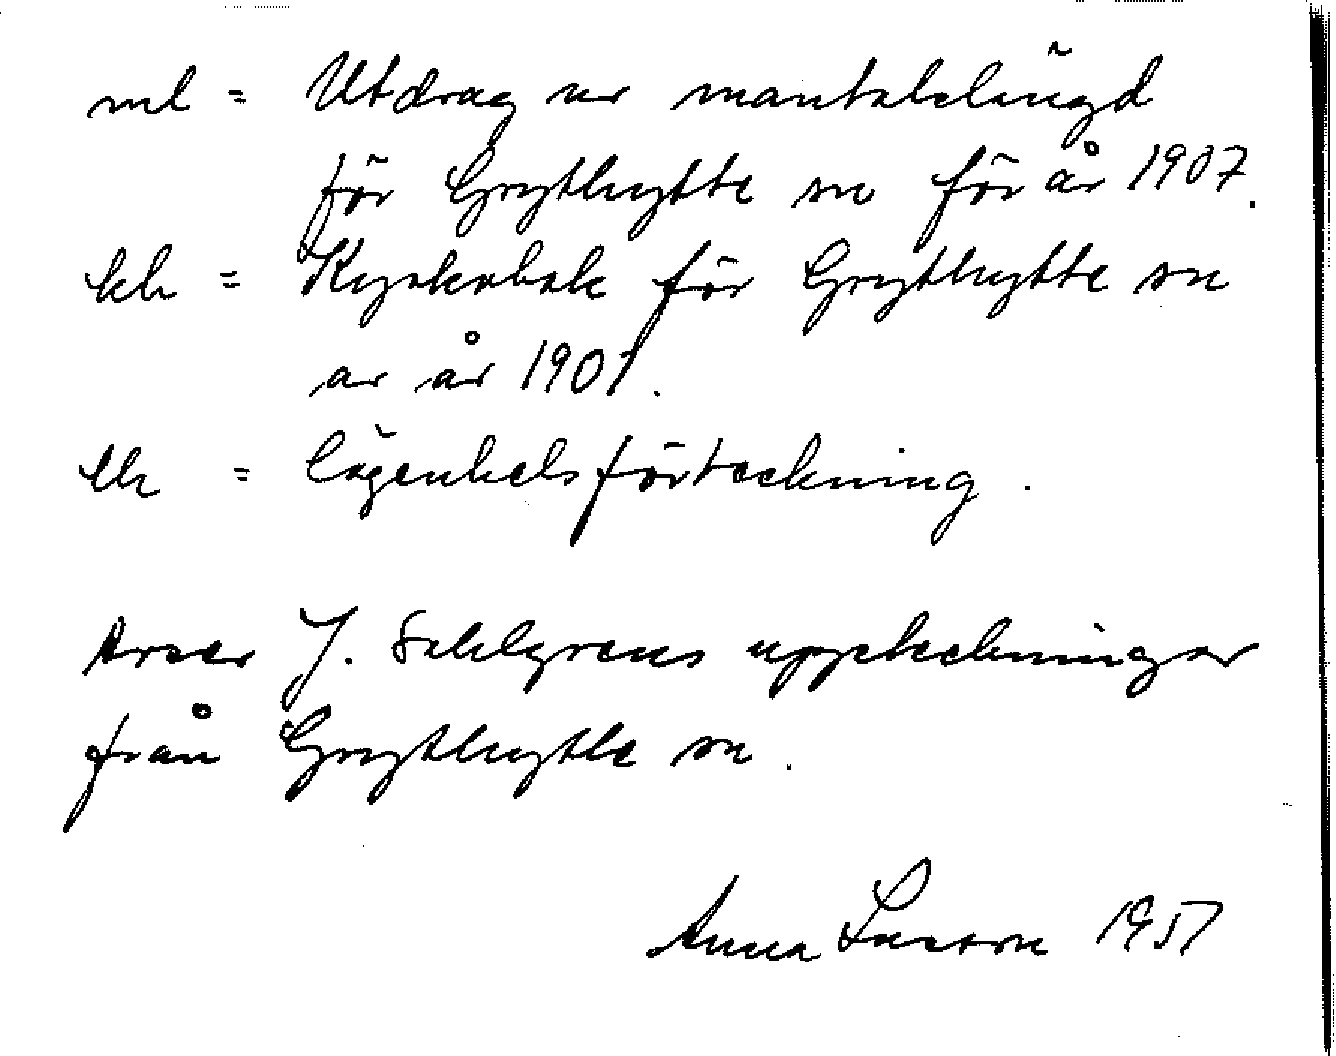 ml = Utdrag ur mantalslängd
för Grythytte sn för år 1907.
kb = Kyrkobok för Grythytte sn
av år 1901.
lh = lägenhetsförteckning.
Avser J. Sahlgrens uppteckningar
från Grythytte sn.
Anna Larson 1957